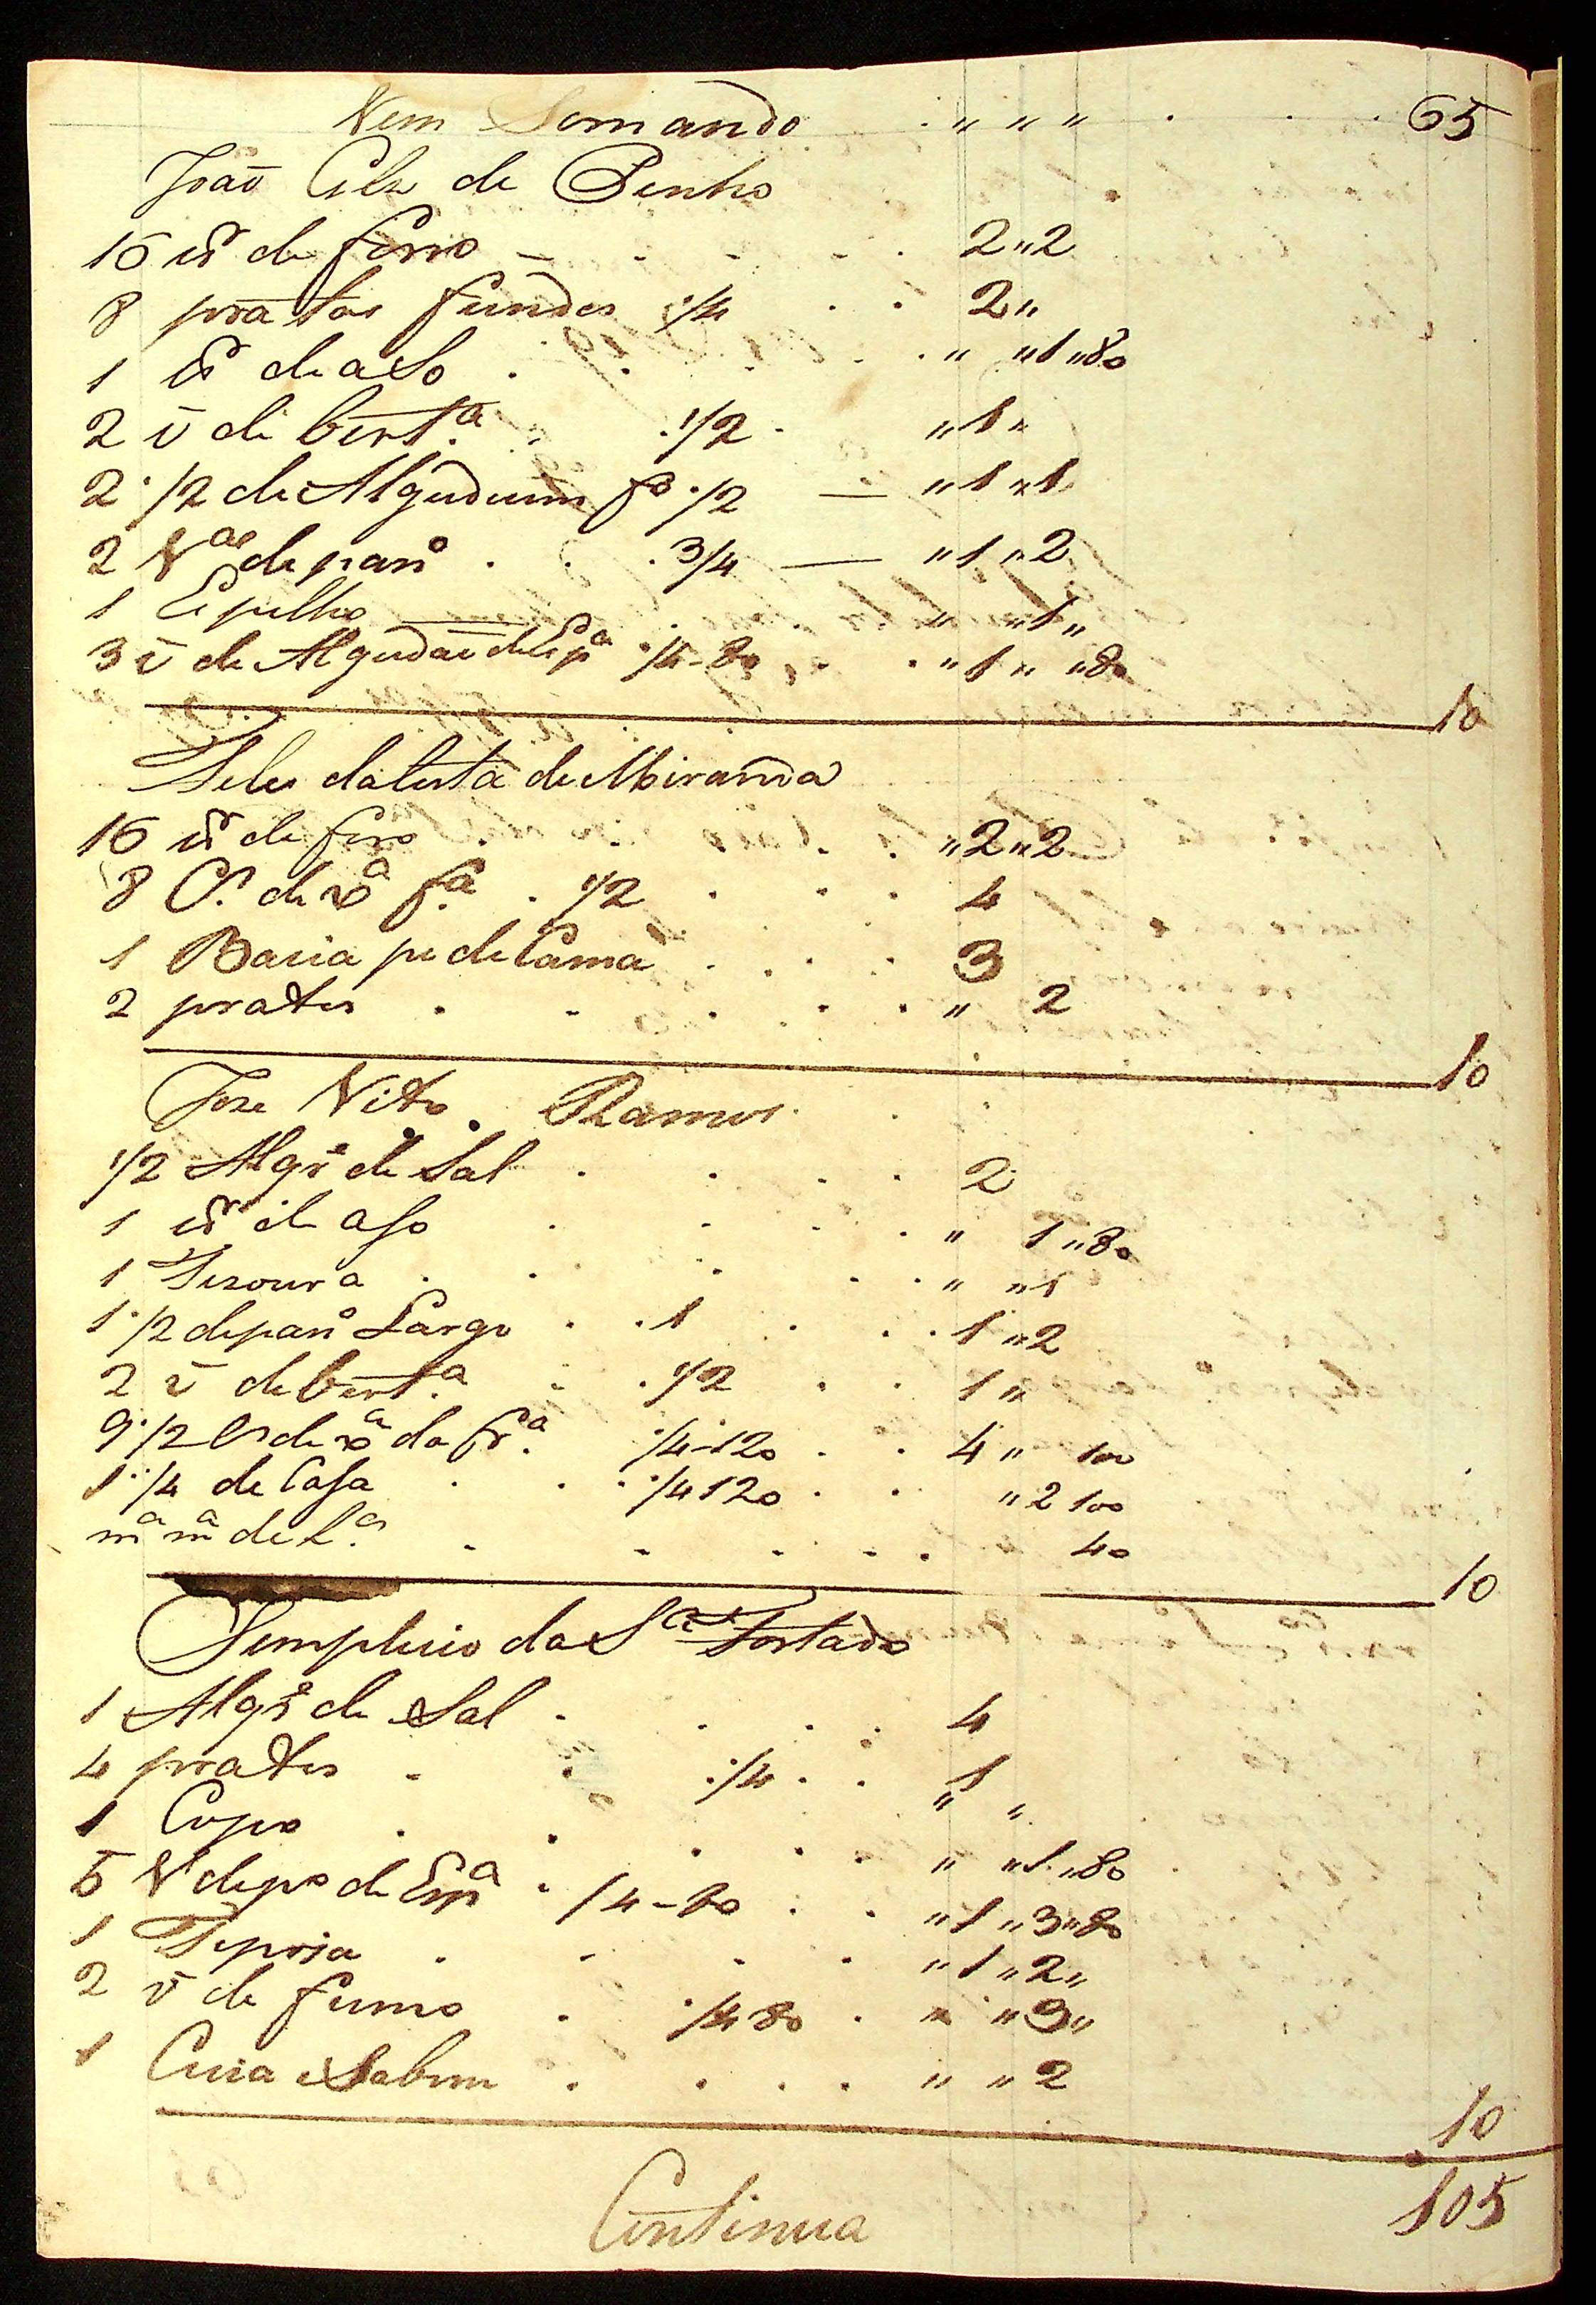 Vem Somando . " " " . . . 65
João Glz de Penho
16 lb de ferro - . - . . 2 " 2
8 pratos fundos 1/4 . . 2 "
1 lb de aso . . . . . " " 1 " 80
2 v de bert.ª . 1/2 . " 1 "
2 1/2 de Algudum f.º 1/2 — " 1 " 1
2 V.as de pan.º . . 3/4 — " 1 " 2
1 Espelho " " 1 "
3 v de Algudaõ de Esp.ª 1/4-80 . . " 1 " " 80
10
Teles da Costa de Miranda
16 lb de fero . . . . " 2 " 2
8 C.º de xª f.ª . 1/2 . . . 4
1 Basia pe de Cama . . . . 3
2 prates . . . . . " 2
10
Joze Vito . Ramos
1/2 Alqr.e de Sal . . . . 2
1 lb de aso . . . . " 1 " 80
1 Tezoura . . . . . " " 1
1 1/2 de pan.º Largo . . 1 . . . 1 " 2
2 v de bert.ª . . 1/2 . . 1 "
9 1/2 C de xª da fr.ª 1/4-120 . . 4 " 100
1 1/4 de Casa . . . 1/4 120 . . " 2 100
mª mª de L.ª . . . . . 40
10
Simplicio da S.ª Fortado
1 Alqr.e de Sal . . . . 4
4 prates . . 1/4 . . 1
1 Copo . . . . . " " 1 " 80
5 V de po de Esp.ª . 1/4-80 . . " 1 " 3 " 80
1 . . . . " 1 " 2 "
2 v de fumo . 1/4 80 . " " 3 "
1 Cuia e Sabum . . . . " " 2
10
105
Continua